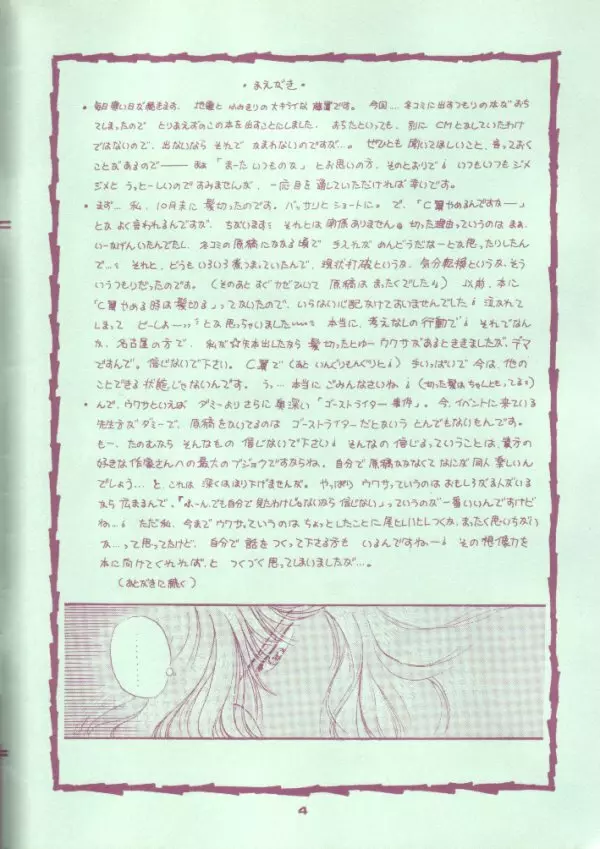 ・まえがき・
・毎日寒い日が続きます、地震と
です。今回…、ネコミに出すつもりの本がおち
てしまったので とりあえずのこの本を出すことにしました、おちたといっても、別に CMとかしていたわけ
ではないので、出ないなら それで かまわないのですが…。ぜひとも 聞いてほしいこと、言っておく
ことがあるので――― まぁ「まーた いつものか」とお思いの方、そのとおりで いつもいつもジメ
ジメと うっとーしいのですみませんが、一応目を通していただければ幸いです。
・まず… 私、10月末に 髪切ったのです。バッサリと ショートに。で、「C翼やめるんですかー」
とか よく言われるんですが、ちがいます それとは関係ありません 切った理由っていうのは まぁ、
いーかげんいたんでたし、ネコミの原稿にかかる頃で 手入れが めんどうだなーとか思ったりしたん
で… それと、どうも いろいろ煮つまっていたんで、現状打破というか、気分転換というか、そう
いうつもりだったのです。(そのあと すぐ カゼひいて 原稿は まったくでした) 以前、本に
「C翼やめる時は髪切る」ってかいたので、いらない心配かけてしまいました 泣かれて
しまって どーしよーっ とか思っちゃいました 本当に、考えなしの行動で それでなん
か、名古屋の方で、私が☆矢本出したから 髪切ったとゆー ウワサがあるとききましたが、デマ
ですんで。信じないで下さい。C翼で
手いっぱいで 今は、他の
ことできる状態じゃないんです。うっ… 本当に ごめんなさいね
・んで、ウワサといえば ダミーよりさらに奥深い「ゴーストライター事件」。今、イベントに来ている
先生方がダミーで、原稿をかいてるのは ゴーストライターだとかいう とんでもないもんです。
もー、たのむから そんなもの 信じないで下さい そんなの 信じるっていうことは、貴方の
好きな作家さんへの最大のブジョクですからね。自分で原稿かかなくて なにが同人 楽しいん
でしょう… と、これは 深くはほり下げませんが。やっぱり ウワサっていうのは おもしろがる人がいる
から 広まるんで、「ふーん、でも自分で見たわけじゃないなら 信じない」っていうのが一番いいんですけど
ね… ただ私、今まで ウワサっていうのは ちょっとしたことに尾ヒレ
が…って思ってたけど、自分で 話を つくって下さる方も いるんですねー その想像力を
本に向けてくれれば、と つくづく思ってしまいましたが…。
(あとがきに続く)
4